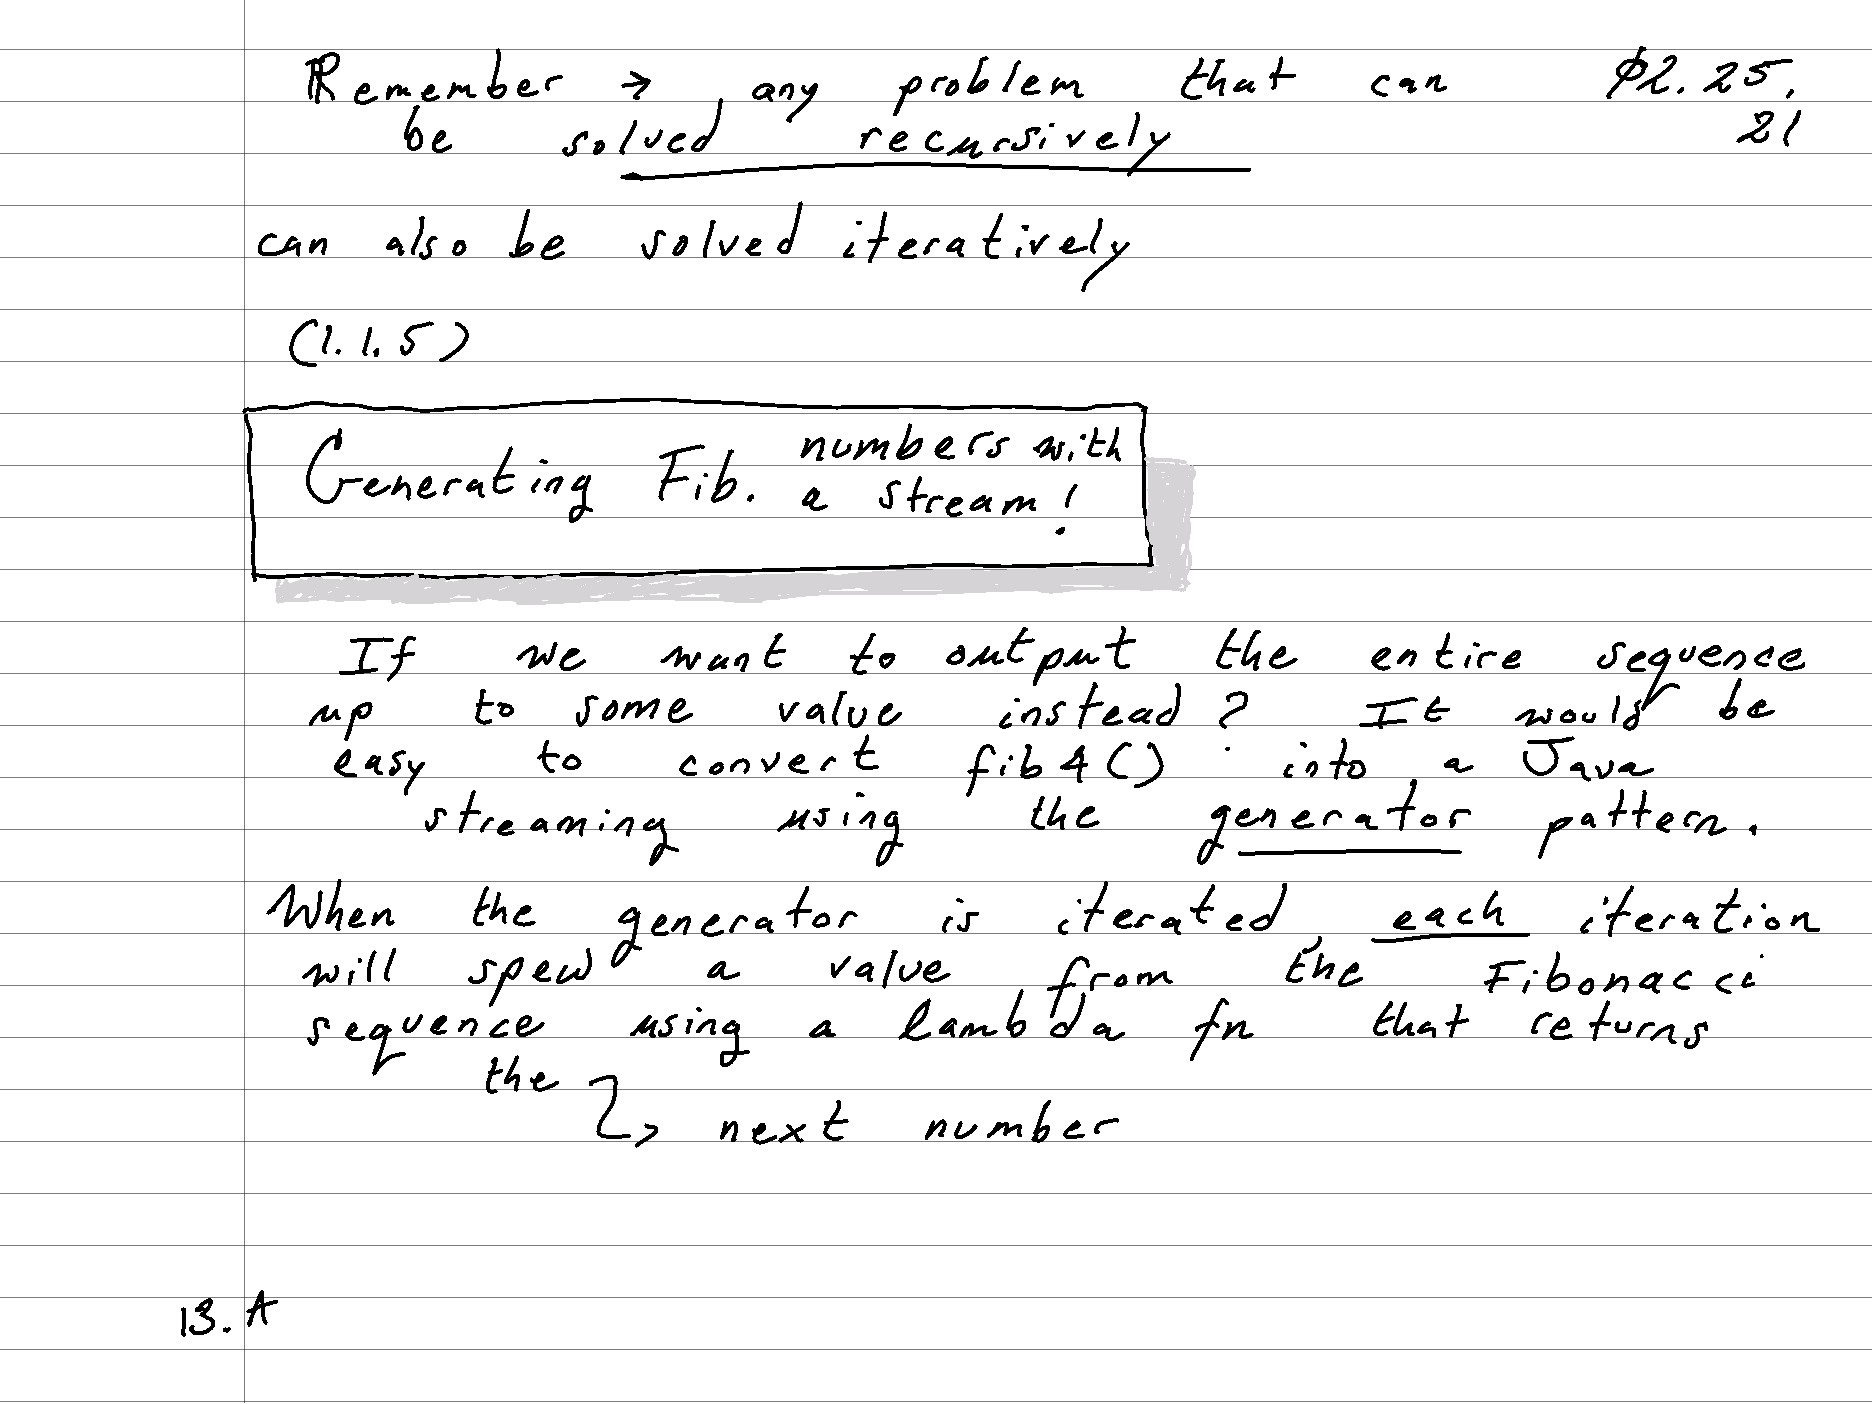 Remember → any problem that can
02.25.
21
be solved recursively
can also be solved iteratively
(1.1.5)
Generating Fib. numbers with
a stream!
If we want to output the entire sequence
up to some value instead? It would be
easy to convert fib4() into a Java
streaming using the generator pattern.
When the generator is iterated, each iteration
will spew a value from the Fibonacci
sequence using a lambda fn that returns
the
↳ next number
13.A